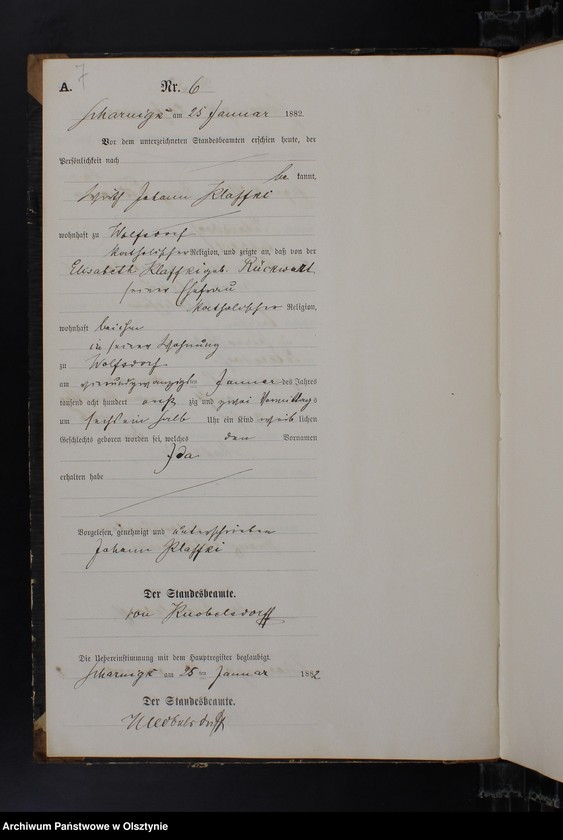 7
A. Nr. 6
Scharnigk am 25 Januar 1882.
Vor dem unterzeichneten Standesbeamten erschien heute, der
Persönlichkeit nach
be kannt,
Wirth Johann Klaffki
wohnhaft zu Wolfsdorf
katholischer Religion, und zeigte an, daß von der
Elisabeth Klaffki geb. Rückwart
seiner Ehefrau
katholischer Religion,
wohnhaft bei ihm
in seiner Wohnung
zu Wolfsdorf
am vierundzwanzigsten Januar des Jahres
tausend acht hundert acht zig und zwei Vormittags
um sechs ein halb Uhr ein Kind weib lichen
Geschlechts geboren worden sei, welches den Vornamen
Ida
erhalten habe
Vorgelesen, genehmigt und unterschrieben
Johann Klaffki
Der Standesbeamte.
von Knobelsdorff
Die Uebereinstimmung mit dem Hauptregister beglaubigt.
Scharnigk am 25 ten Januar 1882
Der Standesbeamte.
Knobelsdorff
Archiwum Państwowe w Olsztynie